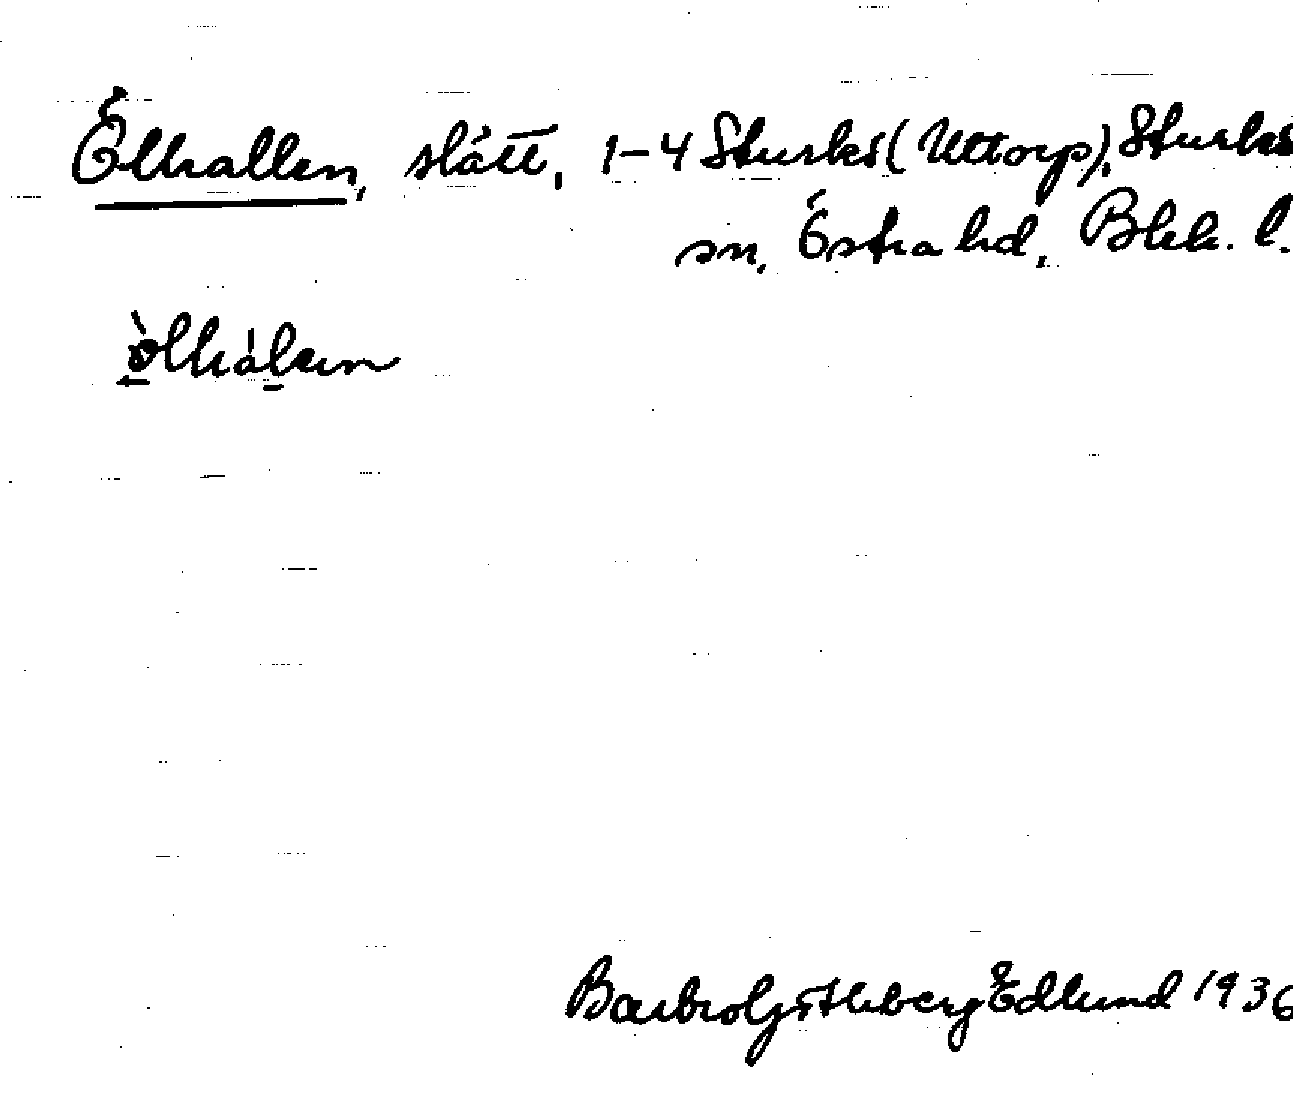 Ölhallen, slätt, 1-4 Sturkö (Uttorp), Sturkö
sn, Östra hd, Blek. l.
Barbro Götheberg Edlund 1936